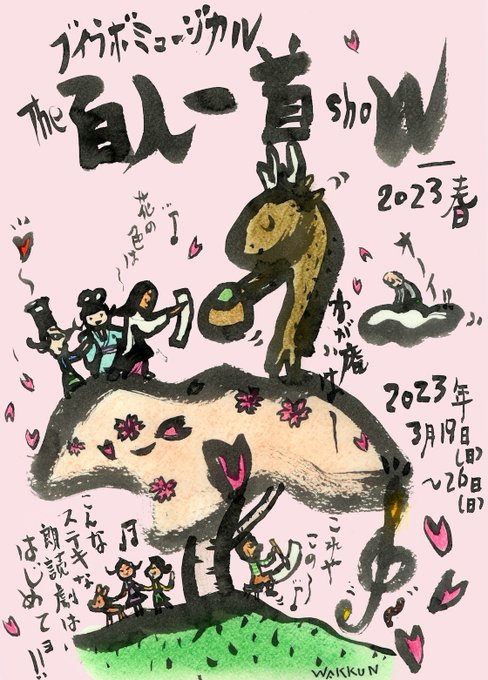 ブイラボミュージカル
The 百人一首 show
2023春
花の色は〜
オーイ
わが庵はー
2023年
3月19日(日)
〜26日(日)
これや
この〜
こんな
ステキな
朗読劇は、
はじめてョ!!
WAKKUN